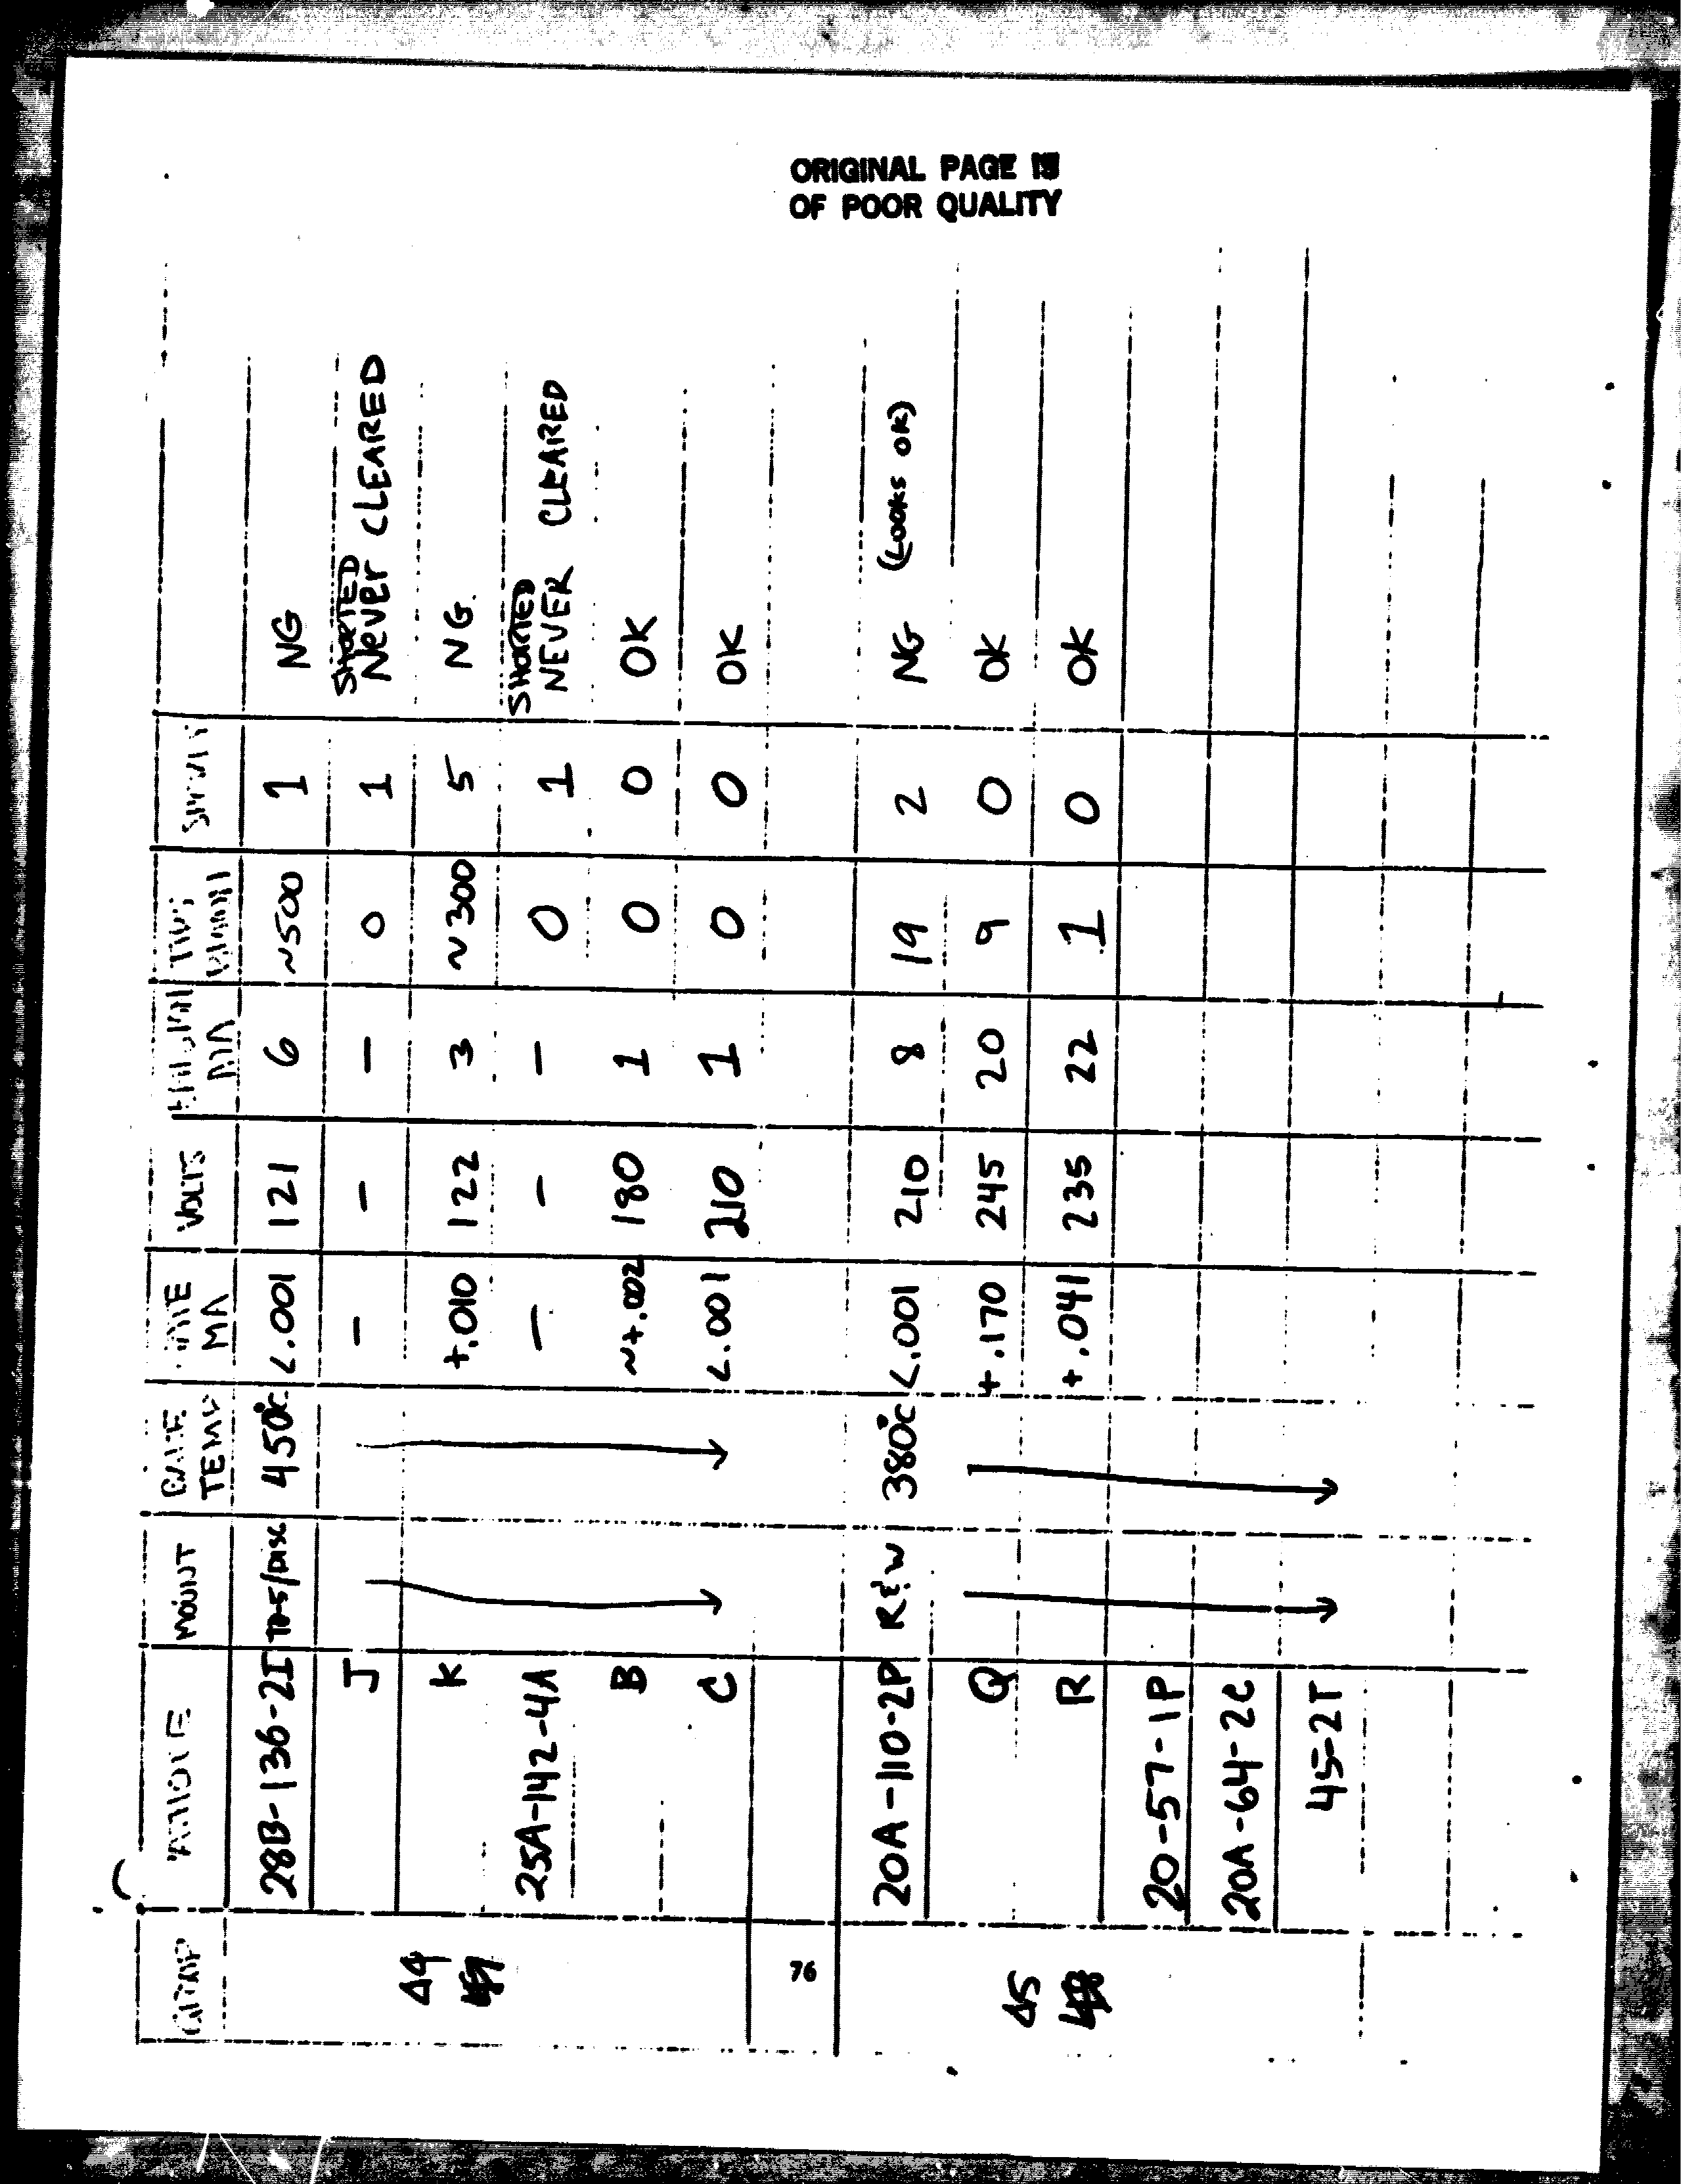 ORIGINAL PAGE IS
OF POOR QUALITY
MOUNT TEMP MA VOLTS MA
28B-136-2I TO-5/DISC 450°C <.001 121 6 ~500 1 NG
J - - - 0 1 SHORTED NEVER CLEARED
K +.010 122 3 ~300 5 NG.
25A-142-4A - - - 0 1 SHORTED NEVER CLEARED
B ~+.002 180 1 0 0 OK
C <.001 210 1 0 0 OK
76
20A-110-2P R&W 380°C <.001 210 8 19 2 NG (LOOKS OK)
Q +.170 245 20 9 0 OK
R +.041 235 22 1 0 OK
20-57-1P
20A-64-2C
45-2T